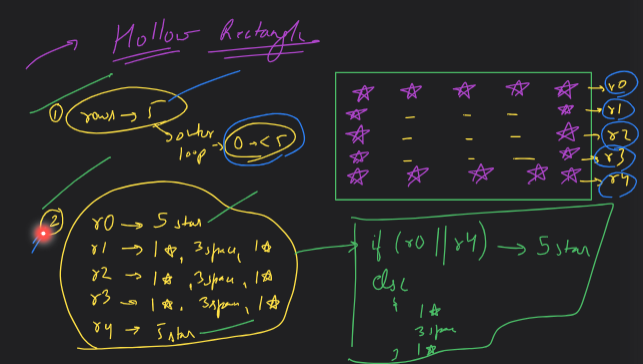 Hollow Rectangle
① rows → 5
outer loop → 0 → < 5
→ r0
→ r1
→ r2
→ r3
→ r4
②
r0 → 5 star
r1 → 1☆, 3 space, 1☆
r2 → 1☆, 3 space, 1☆
r3 → 1☆, 3 space, 1☆
r4 → 5 star
if (r0 || r4) → 5 star
else
{ 1☆
3 space
} 1☆